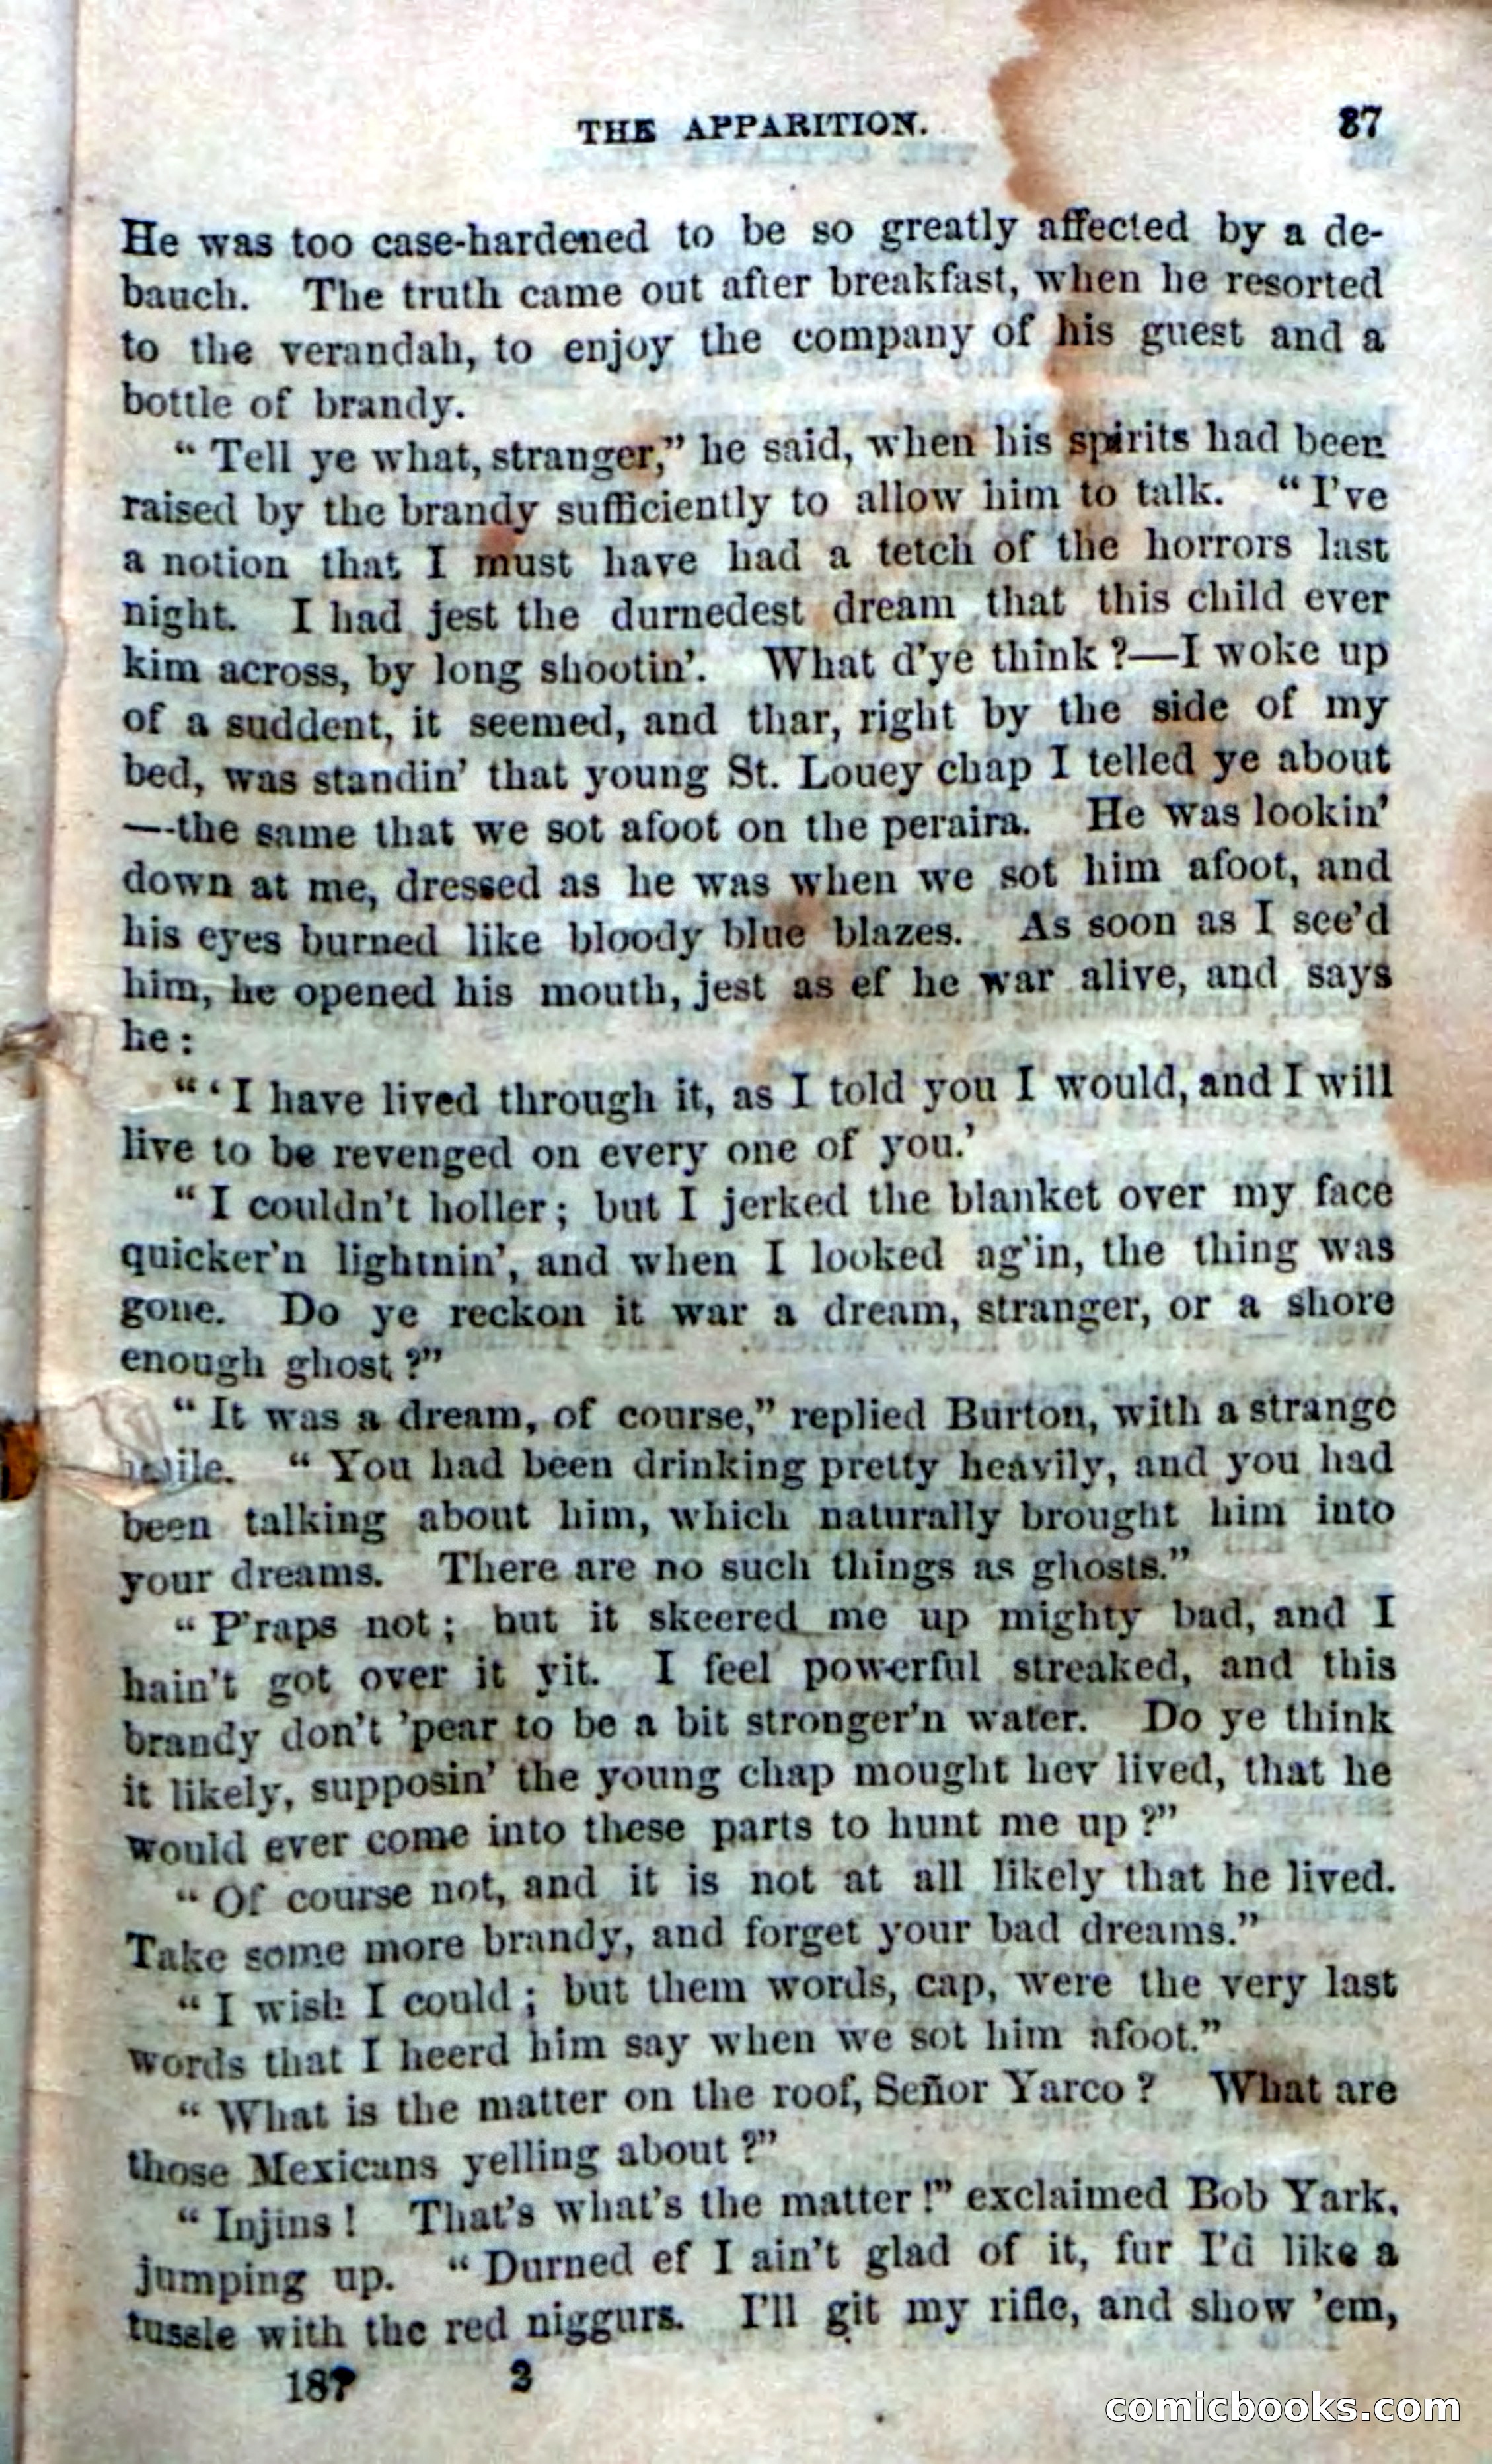 THE APPARITION. 37
He was too case-hardened to be so greatly affected by a de-
bauch. The truth came out after breakfast, when he resorted
to the verandah, to enjoy the company of his guest and a
bottle of brandy.
“Tell ye what, stranger,” he said, when his spirits had been
raised by the brandy sufficiently to allow him to talk. “I've
a notion that I must have had a tetch of the horrors last
night. I had jest the durnedest dream that this child ever
kim across, by long shootin'. What d'ye think?—I woke up
of a suddent, it seemed, and thar, right by the side of my
bed, was standin' that young St. Louey chap I telled ye about
—the same that we sot afoot on the peraira. He was lookin'
down at me, dressed as he was when we sot him afoot, and
his eyes burned like bloody blue blazes. As soon as I see'd
him, he opened his mouth, jest as ef he war alive, and says
he:
“‘I have lived through it, as I told you I would, and I will
live to be revenged on every one of you.’
“I couldn't holler; but I jerked the blanket over my face
quicker'n lightnin', and when I looked ag'in, the thing was
gone. Do ye reckon it war a dream, stranger, or a shore
enough ghost?”
“It was a dream, of course,” replied Burton, with a strange
“You had been drinking pretty heavily, and you had
been talking about him, which naturally brought him into
your dreams. There are no such things as ghosts.”
“P'raps not; but it skeered me up mighty bad, and I
hain't got over it yit. I feel powerful streaked, and this
brandy don't 'pear to be a bit stronger'n water. Do ye think
it likely, supposin' the young chap mought hev lived, that he
would ever come into these parts to hunt me up?”
“Of course not, and it is not at all likely that he lived.
Take some more brandy, and forget your bad dreams.”
“I wish I could; but them words, cap, were the very last
words that I heerd him say when we sot him afoot.”
“What is the matter on the roof, Señor Yarco? What are
those Mexicans yelling about?”
“Injins! That's what's the matter!” exclaimed Bob Yark,
jumping up. “Durned ef I ain't glad of it, fur I'd like a
tussle with the red niggurs. I'll git my rifle, and show 'em,
3
comicbooks.com